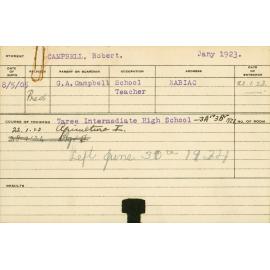 STUDENT CAMPBELL, Robert. Jany 1923.
DATE OF BIRTH RELIGION PARENT OR GUARDIAN OCCUPATION ADDRESS DATE OF ENTRANCE
8/5/05 G.A.Campbell School Teacher NABIAC
Pres
COURSE OF TRAINING Taree Intermediate High School NO. OF ROOM
22.1.23
Left June 30th 1924
RESULTS